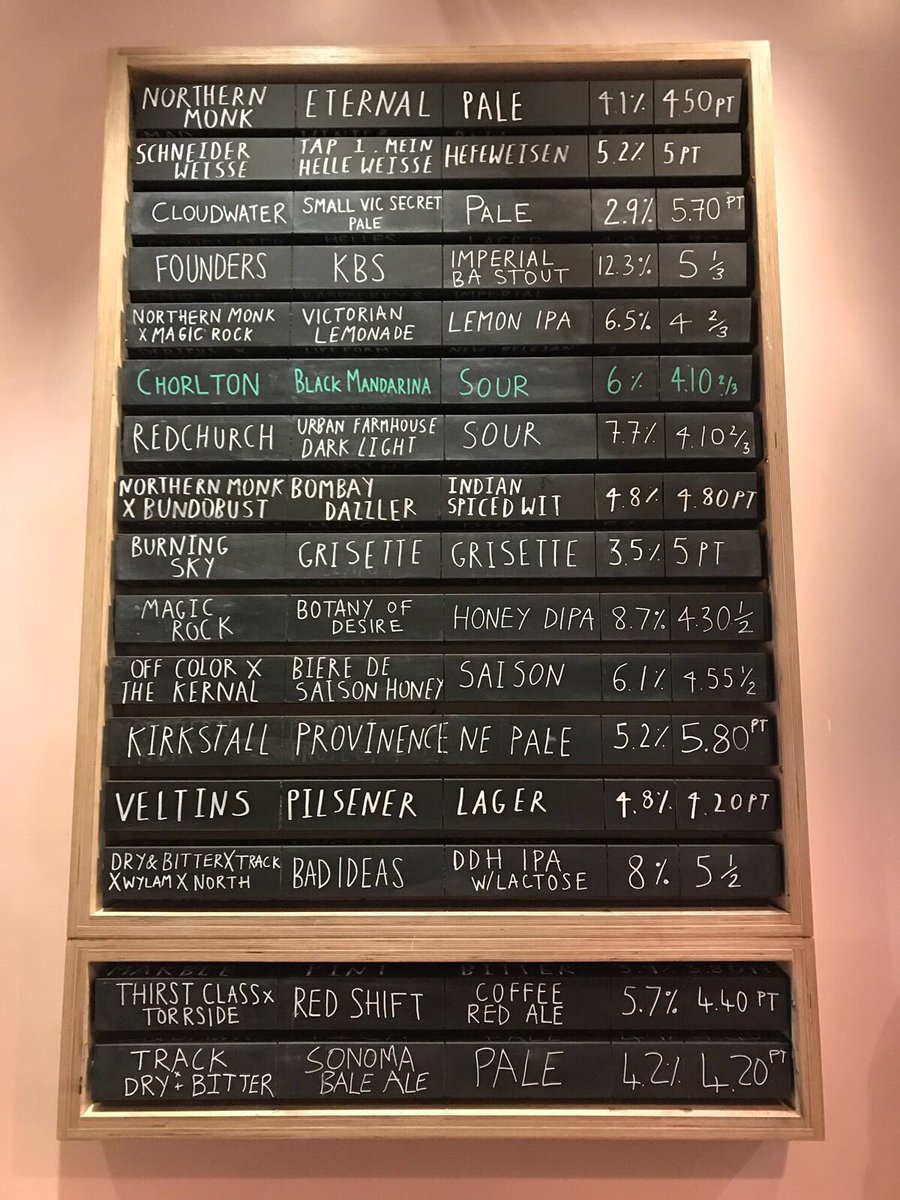 NORTHERN MONK ETERNAL PALE 4.1% 4.50 PT
SCHNEIDER WEISSE TAP 1. MEIN HELLE WEISSE HEFEWEISEN 5.2% 5 PT
CLOUDWATER SMALL VIC SECRET PALE PALE 2.9% 5.70 PT
FOUNDERS KBS IMPERIAL BA STOUT 12.3% 5 1/3
NORTHERN MONK X MAGIC ROCK VICTORIAN LEMONADE LEMON IPA 6.5% 4 2/3
CHORLTON BLACK MANDARINA SOUR 6% 4.10 2/3
REDCHURCH URBAN FARMHOUSE DARK LIGHT SOUR 7.7% 4.10 2/3
NORTHERN MONK X BUNDOBUST BOMBAY DAZZLER INDIAN SPICED WIT 4.8% 4.80 PT
BURNING SKY GRISETTE GRISETTE 3.5% 5 PT
MAGIC ROCK BOTANY OF DESIRE HONEY DIPA 8.7% 4.30 1/2
OFF COLOR X THE KERNAL BIERE DE SAISON HONEY SAISON 6.1% 4.55 1/2
KIRKSTALL PROVINENCE NE PALE 5.2% 5.80 PT
VELTINS PILSENER LAGER 4.8% 4.20 PT
DRY & BITTER X TRACK X WYLAM X NORTH BAD IDEAS DDH IPA W/LACTOSE 8% 5 1/2
MARBLE PINT BITTER
THIRST CLASS x TORRSIDE RED SHIFT COFFEE RED ALE 5.7% 4.40 PT
TRACK x DRY + BITTER SONOMA BALE ALE PALE 4.2% 4.20 PT